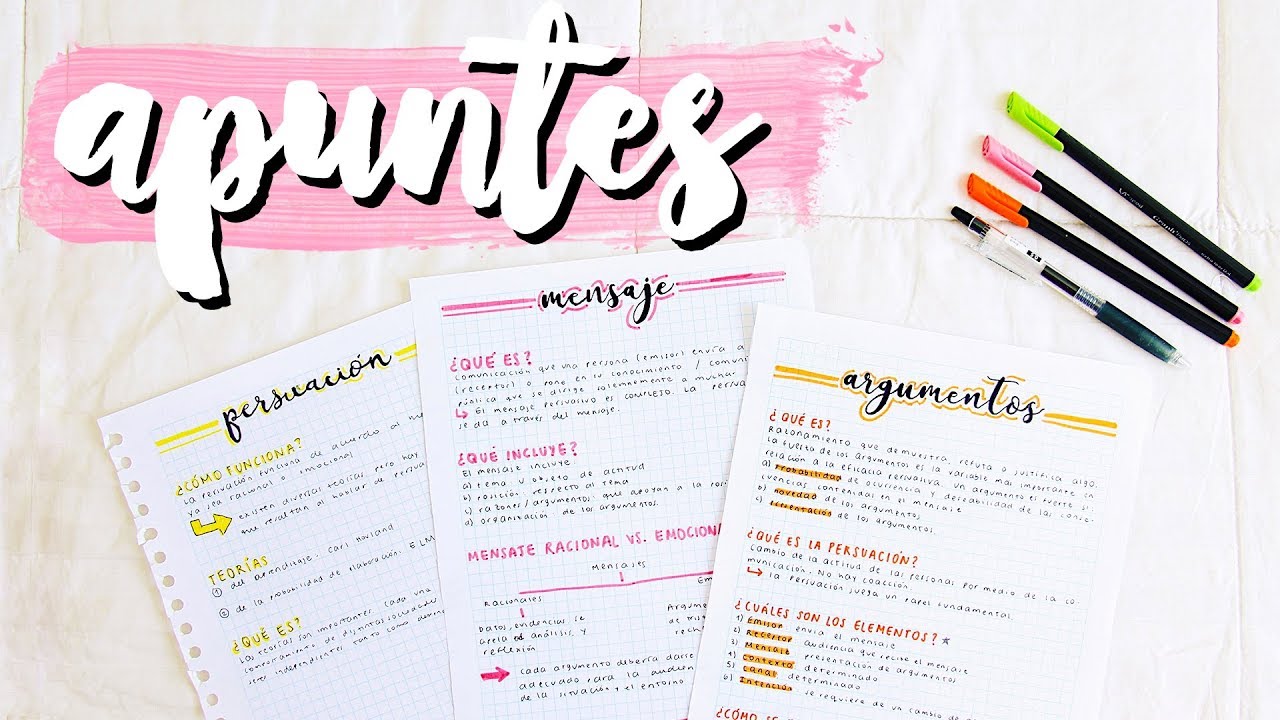 apuntes
persuación
¿CÓMO FUNCIONA?
La persuación funciona de acuerdo al
ya sea racional o emocional
existen diversas teorías, pero hay
una revelación al hablar de persua
TEORÍAS
① del aprendizaje: Carl Hovland
② de la probabilidad de elaboración: ELM
¿QUÉ ES?
mensaje
¿QUÉ ES?
Comunicación que una persona (emisor) envía a
(receptor) o pone en su conocimiento / comuni
El mensaje persuasivo es COMPLEJO. La persua
se da a través del mensaje.
¿QUÉ INCLUYE?
El mensaje incluye:
a) tema u objeto de actitud
b) posición respecto al tema
c) razones/argumentos que apoyan a la posi
d) organización de los argumentos.
MENSAJE RACIONAL VS. EMOCIONA
Mensajes
Racionales
Em
Datos, evidencias, se
apela al análisis y
reflexión
Argum
de tris
rech
cada argumento deberá darse
adecuado para la audien
de la situación y el entorno
argumentos
¿QUÉ ES?
Razonamiento que demuestra, refuta o justifica algo.
La fuerza de los argumentos es la variable más importante en
relación a la eficacia persuasiva. Un argumento es fuerte si:
a) Probabilidad de ocurrencia y deseabilidad de las conse-
cuencias contenidas en el mensaje
b) novedad de los argumentos
c) orientación de los argumentos.
¿QUÉ ES LA PERSUACIÓN?
Cambio de la actitud de las personas por medio de la co-
municación. No hay coacción
La persuación juega un papel fundamental.
¿CUÁLES SON LOS ELEMENTOS? ★
1) Emisor envía el mensaje
2) Receptor audiencia que recibe el mensaje
3) Mensaje presentación de argumentos
4) Contexto determinado
5) Canal determinado
6) Intención se requiere de un cambio de
¿CÓMO SE